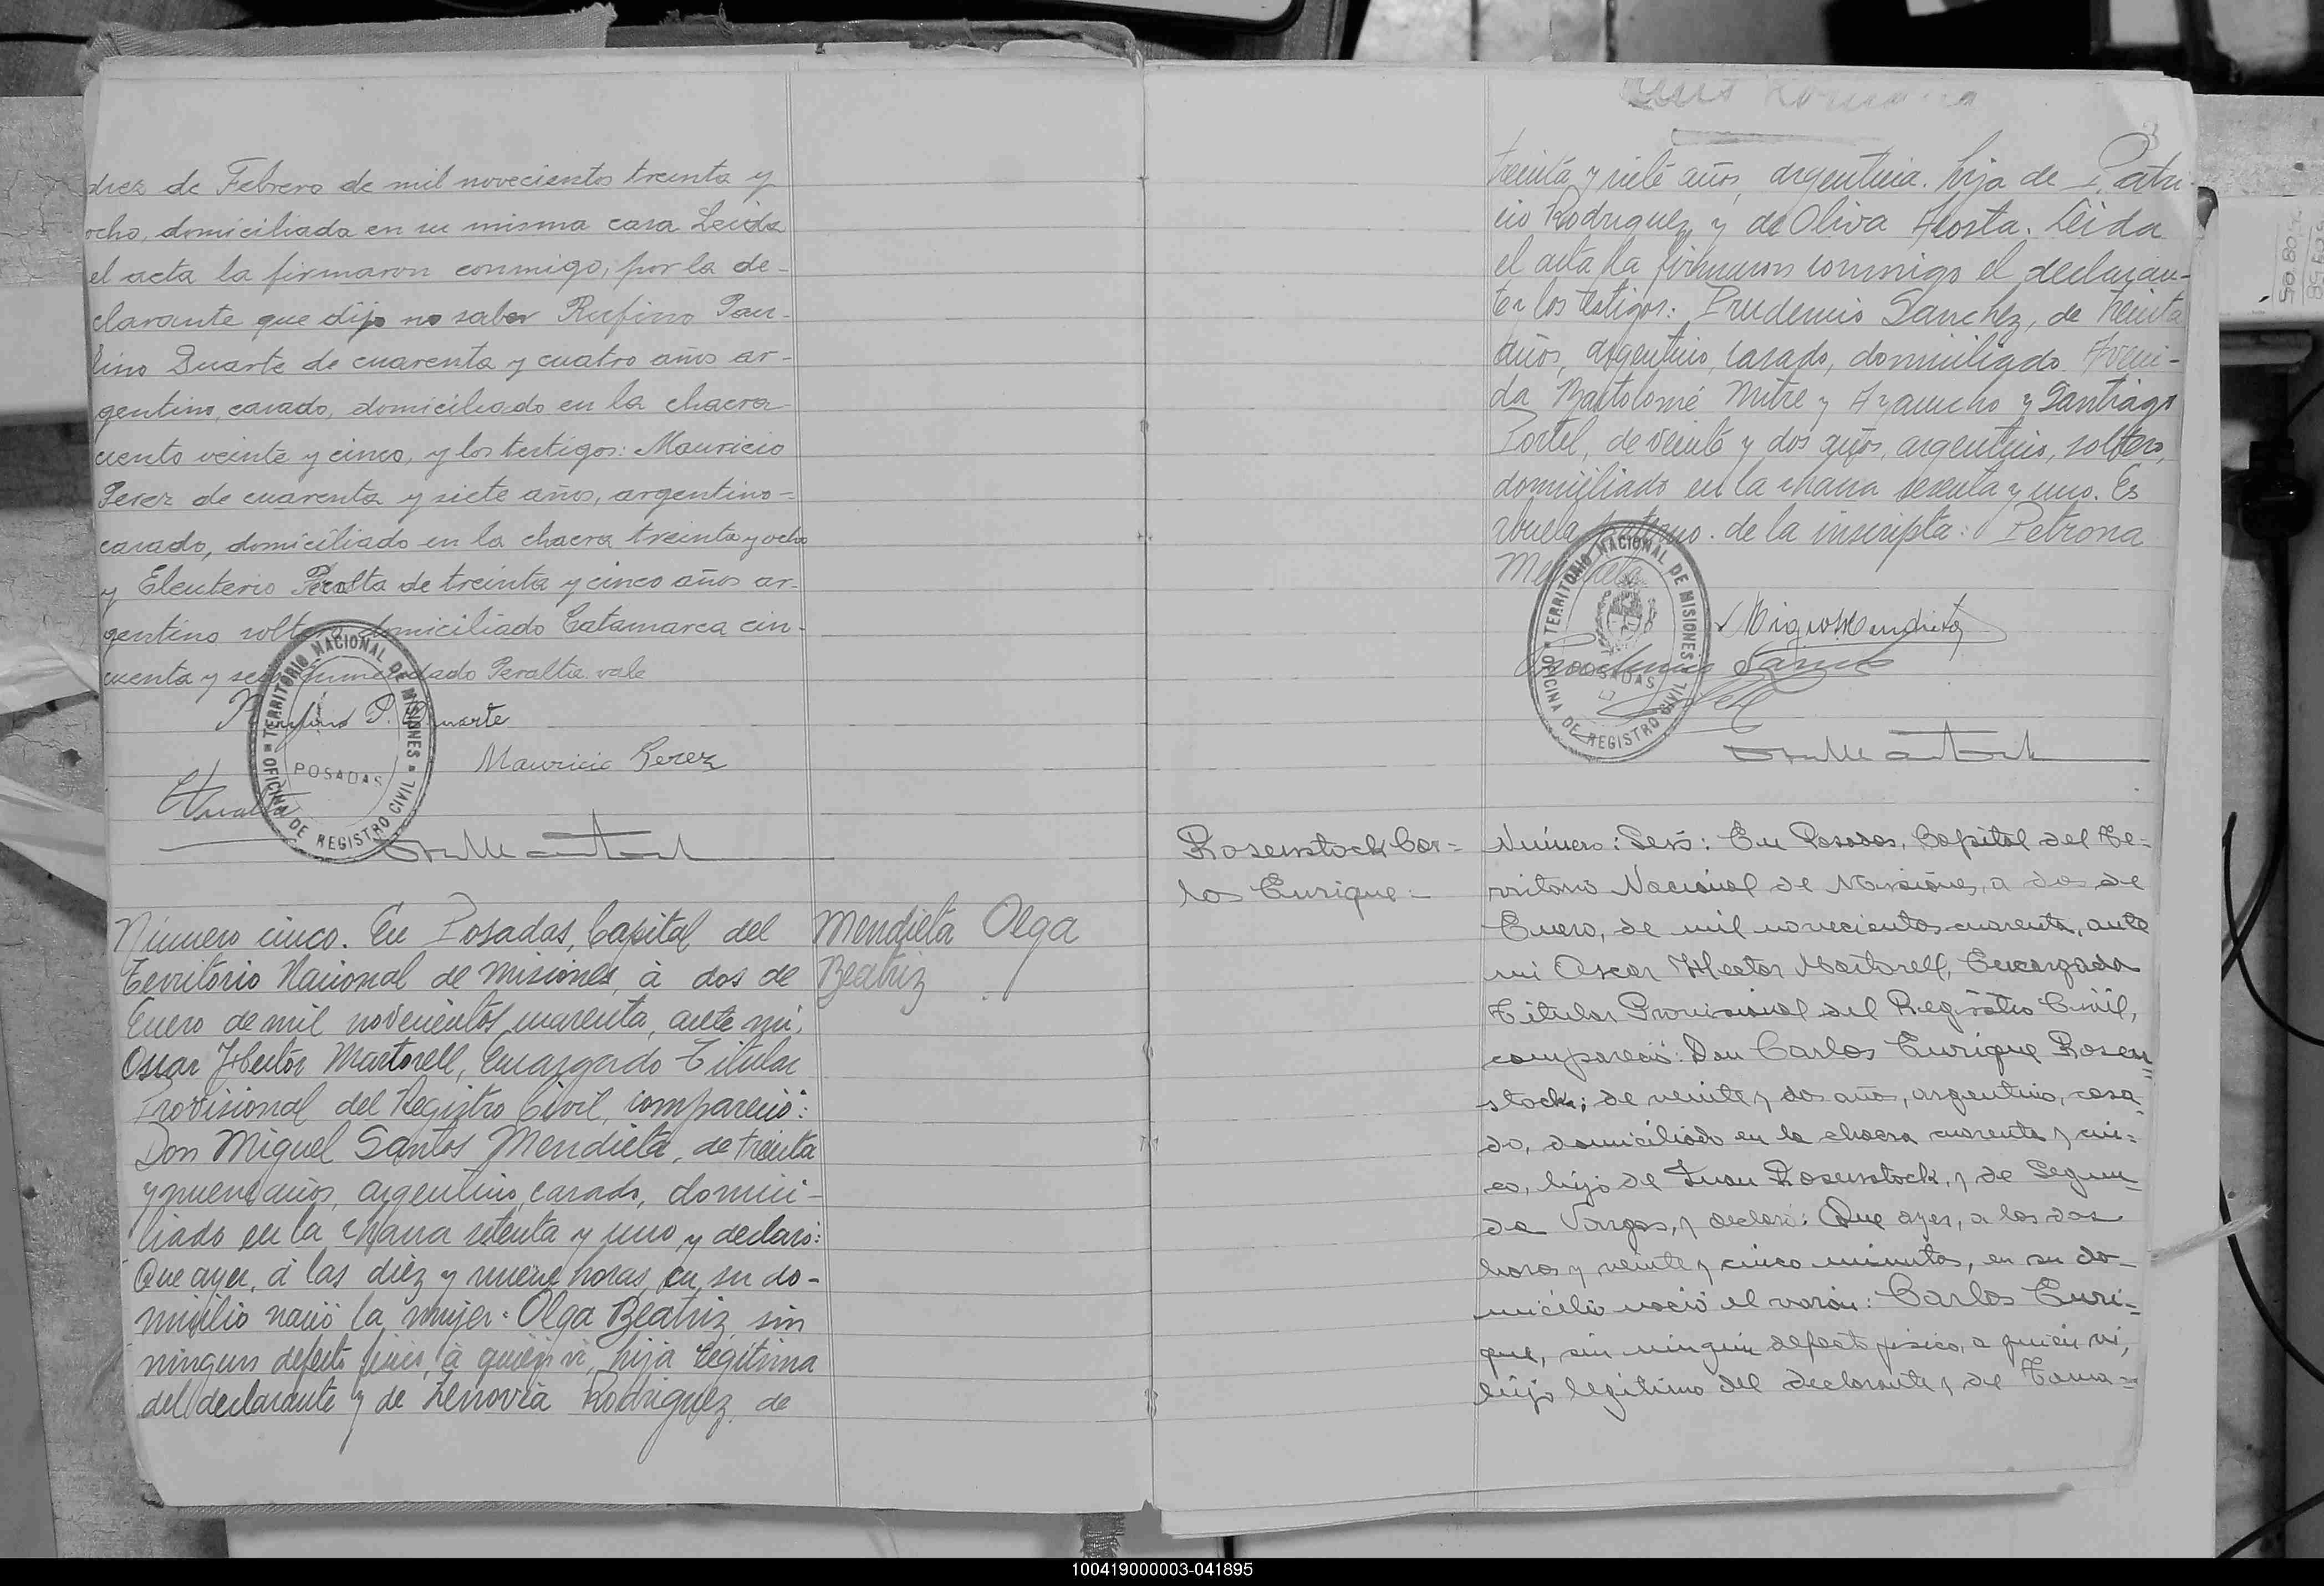 diez de Febrero de mil novecientos treinta y
ocho, domiciliada en su misma casa Leida
el acta la firmaron conmigo, por la de-
clarante que dijo no saber Rufino Pau-
lino Duarte de cuarenta y cuatro años ar-
gentino, casado, domiciliado en la chacra
ciento veinte y cinco, y los testigos: Mauricio
Perez de cuarenta y siete años, argentino-
casado, domiciliado en la chacra treinta y ocho
y Eleuterio Peralta de treinta y cinco años ar-
gentino soltero domiciliado Catamarca cin-
cuenta y seis enmendado Peralta vale
Rufino P. Duarte
Mauricio Perez
TERRITORIO NACIONAL DE MISIONES
POSADAS
OFICINA DE REGISTRO CIVIL
Número cinco. En Posadas, Capital del
Territorio Nacional de Misiones, á dos de
Enero de mil novecientos cuarenta, ante mi,
Oscar Hector Martorell, Encargado Titular
Provisional del Registro Civil, compareció:
Don Miguel Santos Mendieta, de treinta
y nueve años, argentino, casado, domici-
liado en la chacra setenta y uno, y declaró:
Que ayer, á las diez y nueve horas, en su do-
micilio nació la mujer: Olga Beatriz, sin
ningun defecto fisico, á quien vi, hija legitima
del declarante y de Zenovia Rodriguez, de
Mendieta Olga
Beatriz
treinta y siete años, argentina. hija de Patri-
cio Rodriguez y de Oliva Acosta. Leida
el acta la firmaron conmigo el declaran-
te y los testigos: Prudencio Sanchez, de treinta
años, argentino, casado, domiciliado Aveni-
da Bartolomé Mitre y Ayacucho y Santiago
Portel, de veinte y dos años, argentino, soltero,
domiciliado en la chacra setenta y uno. Es
abuela paterno. de la inscripta: Petrona
Mendieta
Miguel S Mendieta
Prudencio Sanchez
TERRITORIO NACIONAL DE MISIONES
POSADAS
OFICINA DE REGISTRO CIVIL
Rosenstock Car=
los Enrique=
Número: Seis: En Posadas, Capital del Te=
rritorio Nacional de Misiones, a dos de
Enero, de mil novecientos cuarenta, ante
mi Oscar Hector Martorell, Encargado
Titular Provisional del Registro Civil,
compareció: Don Carlos Enrique Rosen=
stock; de veinte y dos años, argentino, casa=
do, domiciliado en la chacra cuarenta y cin=
co, hijo de Juan Rosenstock, y de Segun=
da Vargas, y declaró: Que ayer, a las dos
horas y veinte y cinco minutos, en su do-
micilio nació el varón: Carlos Enri=
que, sin ningún defecto fisico, a quien vi,
hijo legitimo del declarante y de Toma=
100419000003-041895